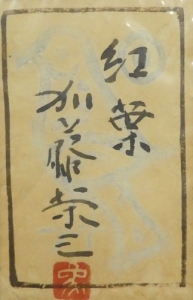 紅葉
加藤栄三